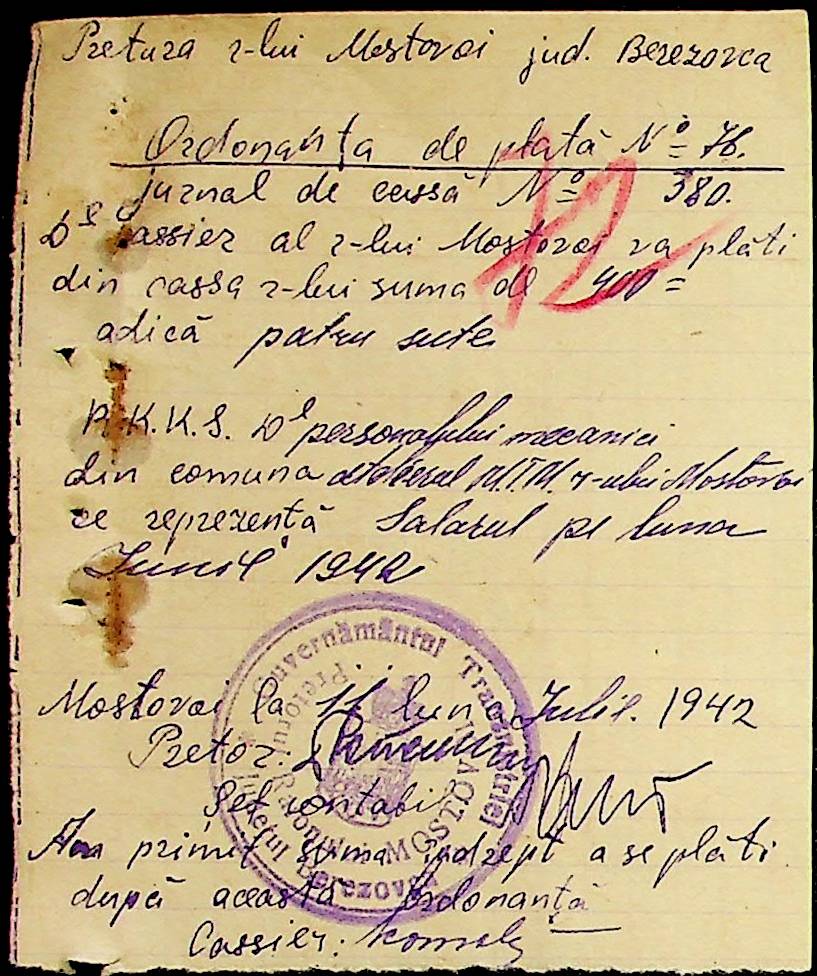 Pretura r-lui Mostovoi jud. Berezovca
Ordonanța de plată Nº 76.
jurnal de cassă Nº 380.
Dˡ Cassier al r-lui Mostovoi va plăti
din cassa r-lui suma de 400 =
adică patru sute
72
R.K.K.S. Dˡ personalului mecanici
din comuna atelierul M.T.M. r-ului Mostovoi
ce reprezentă Salarul pe luna
Iunie 1942
Guvernământul Transnistriei
Județul Berezovca
Pretorul Raionului
MOSTOVOI
Mostovoi la 11 luna Iulie. 1942
Pretor:
Șef contabil
Am primit suma
a se plăti
după aceasta Ordonanță
Cassier: